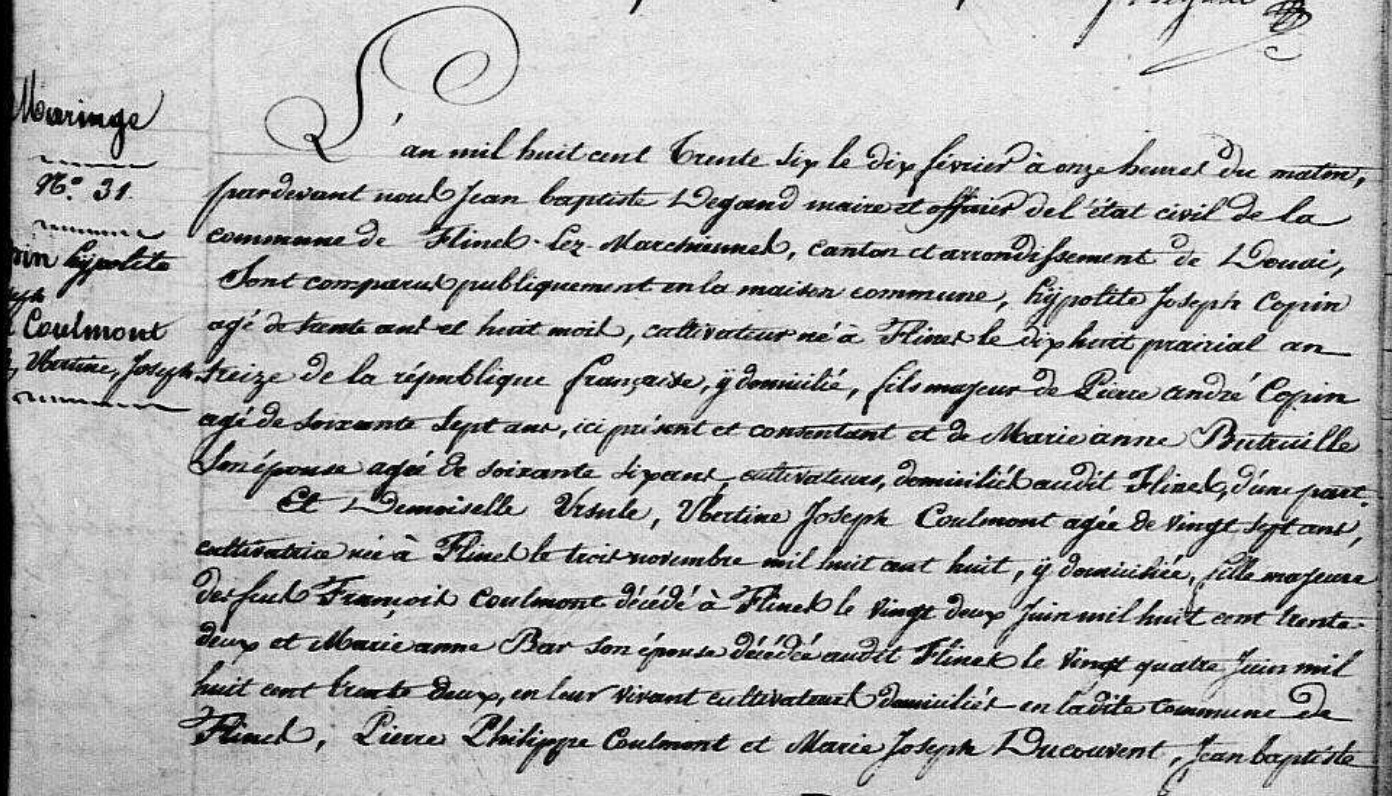 Mariage
N.° 31.
hypolite
Coulmont
Ubertine, Joseph
L'an mil huit cent Trente six le dix février à onze heures du matin,
pardevant nous Jean baptiste Degand maire et officier de l'état civil de la
commune de Flines-Lez-Marchiennes, canton et arrondissement de Douai,
Sont comparus publiquement en la maison commune, hypolite Joseph Copin
agé de trente ans et huit mois, cultivateur né à Flines le dix huit prairial an
treize de la république française, y domicilié, fils majeur de Pierre andré Copin
agé de soixante sept ans, ici présent et consentant et de Marie anne Butruille
Son épouse agée de soixante six ans, cultivateurs, domiciliés audit Flines, d'une part.
Et Demoiselle Ursule, Ubertine Joseph Coulmont agée de vingt sept ans,
cultivatrice née à Flines le trois novembre mil huit cent huit, y domiciliée, fille majeure
des feus François Coulmont décédé à Flines le vingt deux Juin mil huit cent trente-
deux et Marie anne Bar son épouse décédée audit Flines le vingt quatre Juin mil
huit cent trente deux, en leur vivant cultivateurs domiciliés en la dite commune de
Flines, Pierre Philippe Coulmont et Marie Joseph Ducouvent, Jean baptiste